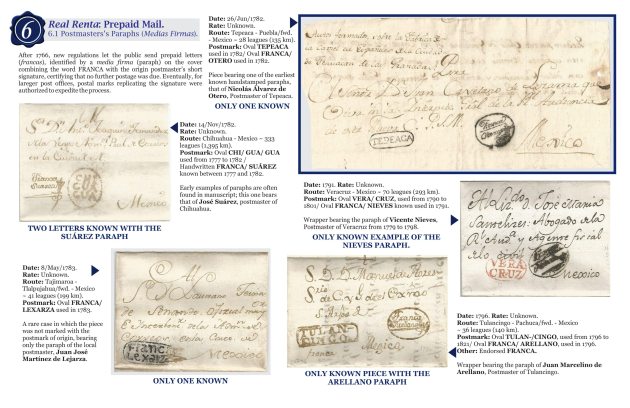 6
Real Renta: Prepaid Mail.
6.1 Postmasters's Paraphs (Medias Firmas).
After 1766, new regulations let the public send prepaid letters
(francas), identified by a media firma (paraph) on the cover
combining the word FRANCA with the origin postmaster's short
signature, certifying that no further postage was due. Eventually, for
larger post offices, postal marks replicating the signature were
authorized to expedite the process.
Date: 26/Jun/1782.
Rate: Unknown.
Route: Tepeaca - Puebla/fwd.
- Mexico ~ 28 leagues (135 km).
Postmark: Oval TEPEACA
used in 1782/ Oval FRANCA/
OTERO used in 1782.
Piece bearing one of the earliest
known handstamped paraphs,
that of Nicolás Álvarez de
Otero, Postmaster of Tepeaca.
ONLY ONE KNOWN
TEPEACA
Mexico
Date: 14/Nov/1782.
Rate: Unknown.
Route: Chihuahua - Mexico ~ 333
leagues (1,395 km).
Postmark: Oval CHI/ GUA/ GUA
used from 1777 to 1782 /
Handwritten FRANCA/ SUÁREZ
known between 1777 and 1782.
Early examples of paraphs are often
found in manuscript; this one bears
that of José Suárez, postmaster of
Chihuahua.
Mexico
TWO LETTERS KNOWN WITH THE
SUÁREZ PARAPH
Date: 1791. Rate: Unknown.
Route: Veracruz - Mexico ~ 70 leagues (293 km).
Postmark: Oval VERA/ CRUZ, used from 1790 to
1801/ Oval FRANCA/ NIEVES known used in 1791.
Wrapper bearing the paraph of Vicente Nieves,
Postmaster of Veracruz from 1779 to 1798.
ONLY KNOWN EXAMPLE OF THE
NIEVES PARAPH.
VERA
CRUZ
Mexico
Date: 8/May/1783.
Rate: Unknown.
Route: Tajimaroa -
Tlalpujahua/fwd. - Mexico
~ 41 leagues (199 km).
Postmark: Oval FRANCA/
LEXARZA used in 1783.
A rare case in which the piece
was not marked with the
postmark of origin, bearing
only the paraph of the local
postmaster, Juan José
Martínez de Lejarza.
Mexico
ONLY ONE KNOWN
TULAN-
CINGO
Franca
Mexico
franca
ONLY KNOWN PIECE WITH THE
ARELLANO PARAPH
Date: 1796. Rate: Unknown.
Route: Tulancingo - Pachuca/fwd. - Mexico
~ 36 leagues (140 km).
Postmark: Oval TULAN-/CINGO, used from 1796 to
1821/ Oval FRANCA/ ARELLANO, used in 1796.
Other: Endorsed FRANCA.
Wrapper bearing the paraph of Juan Marcelino de
Arellano, Postmaster of Tulancingo.